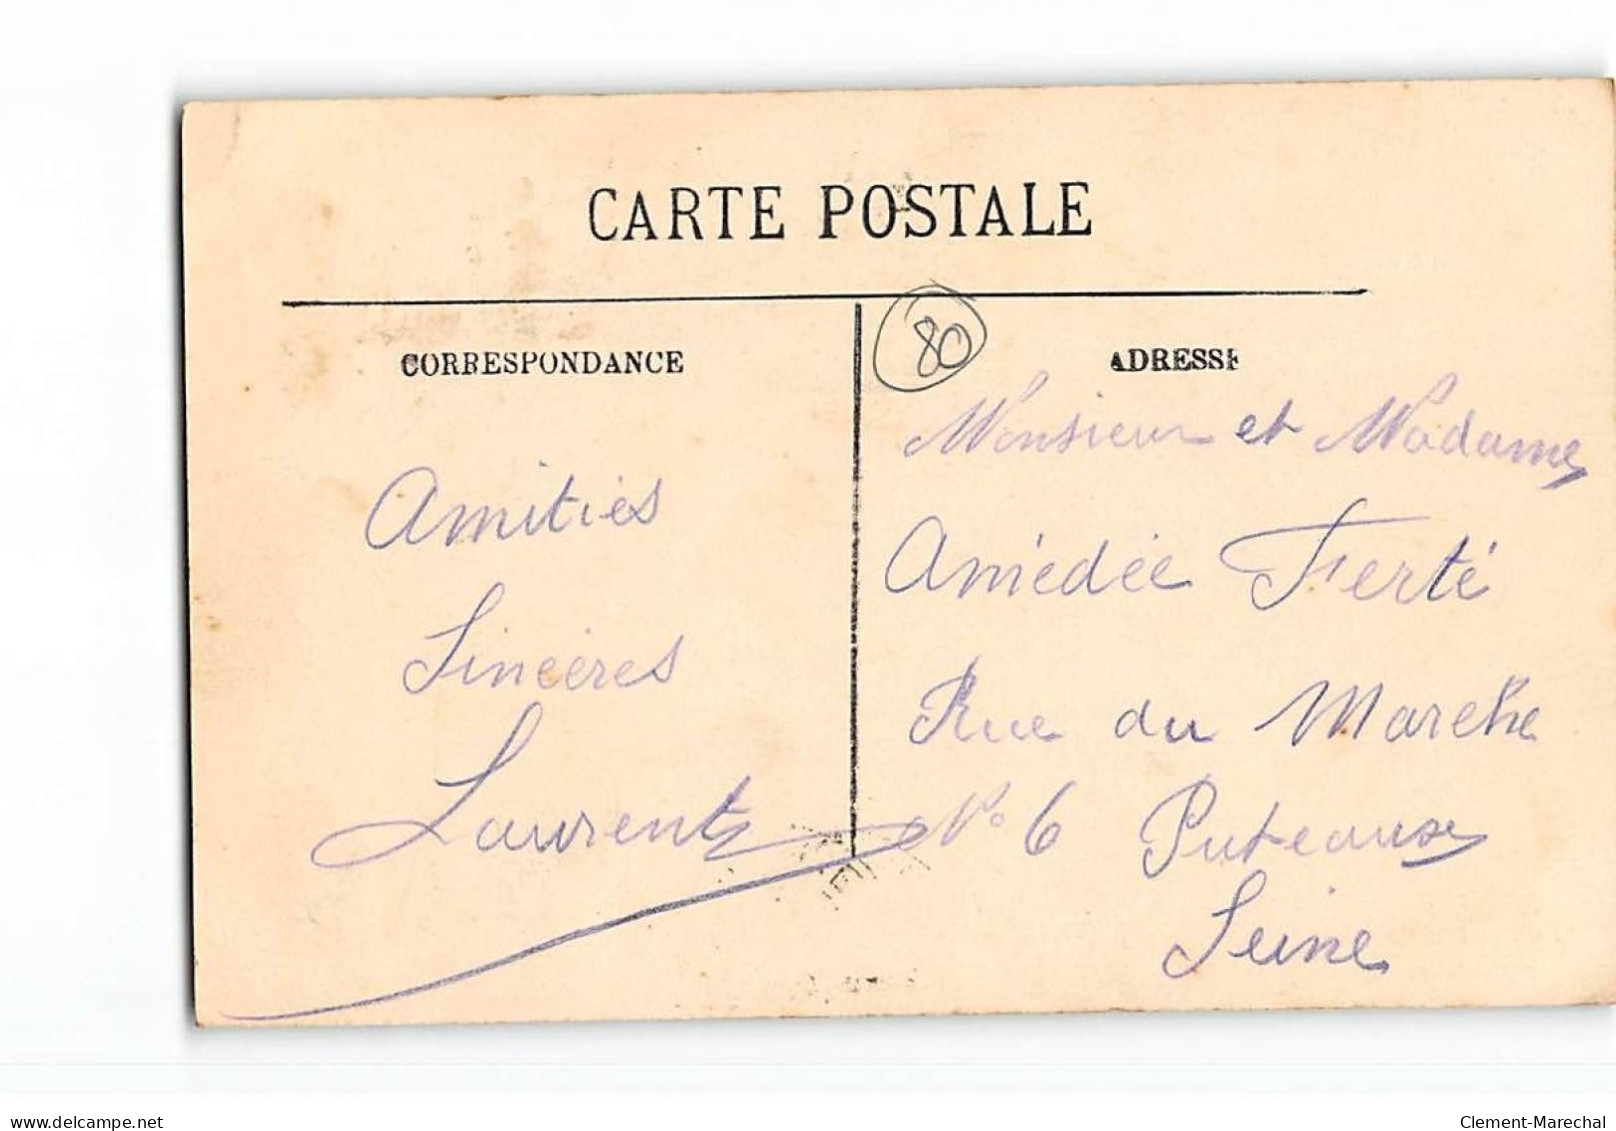 CARTE POSTALE
CORRESPONDANCE
ADRESSE
80
Amitiés
Sincères
Laurent
Monsieur et Madame
Amédée Ferté
Rue du Marché
N° 6 Puteaux
Seine
www.delcampe.net
Clement-Marechal